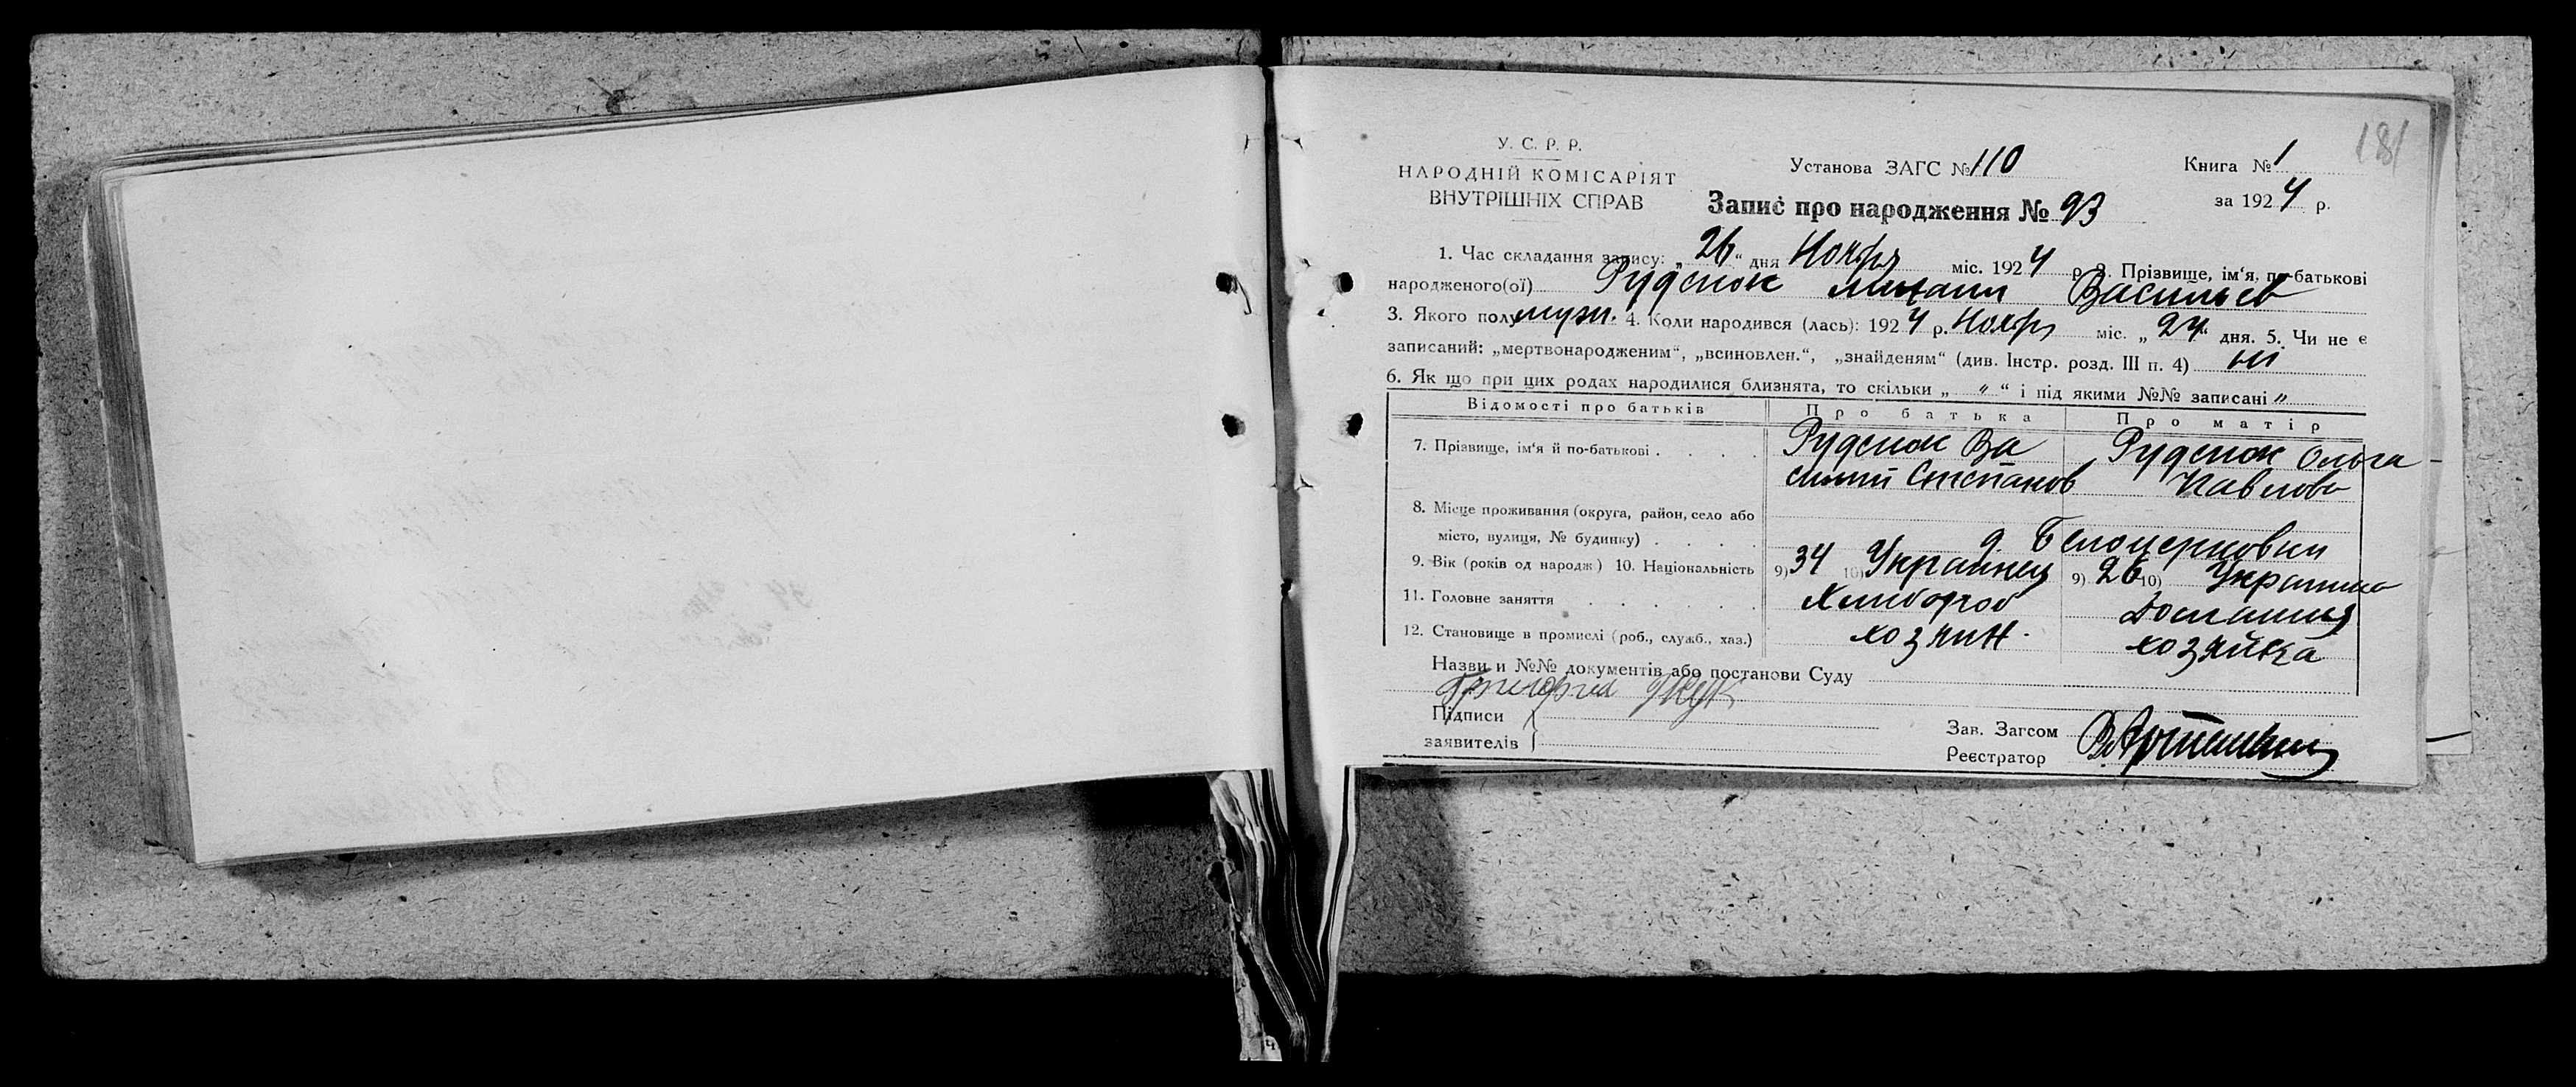 181
У. С. Р. Р.
НАРОДНІЙ КОМІСАРІЯТ
ВНУТРІШНІХ СПРАВ
Установа ЗАГС № 110
Книга № 1
за 1924 р.
Запис про народження № 93
1. Час складання запису: „26“ дня Ноября міс. 1924 р. 2. Прізвище, ім‘я, по-батькові
народженого(ої) Руденок Михаил Васильев
3. Якого полу муж. 4. Коли народився (лась): 1924 р. Ноябр міс. „24“ дня. 5. Чи не є
записаний: „мертвонародженим“, „всиновлен.“, „знайденям“ (див. Інстр. розд. III п. 4) ні
6. Як що при цих родах народилися близнята, то скільки „ „ “ і під якими №№ записані "
Відомості про батьків Про батька Про матір
7. Прізвище, ім‘я й по-батькові . . . . Руденок Ва Руденок Ольга
силий Степанов Павлова
8. Місце проживання (округа, район, село або
місто, вулиця, № будинку) . . . . д Белоцерковки
9. Вік (років од народж) 10. Національність 9) 34 10) Украинец 9) 26 10) Украинка
11. Головне заняття . . . . . . Хлибороб Домашня
12. Становище в промислі (роб., служб., хаз.) хозяин. хозяйка
Назви и №№ документів або постанови Суду
Григорий Жук
Підписи
заявителів
Зав. Загсом
Реєстратор